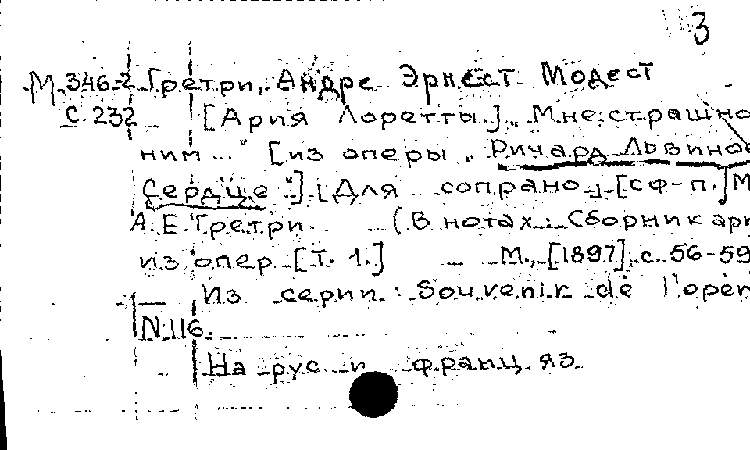 3
М.346-2 Гретри, Андре Эрнест Модест
С 232 [Ария Лоретты.] „Мне страшно
ним..." [из оперы „Ричард Львиное
Сердце"] [Для сопрано с сф-п.] М
А.Е. Гретри (В нотах: Сборник ари
из опер [Т. 1.] М., [1897], с. 56-59
Из серии: Souvenir de l'opér
N 116.
На рус. и франц. яз.